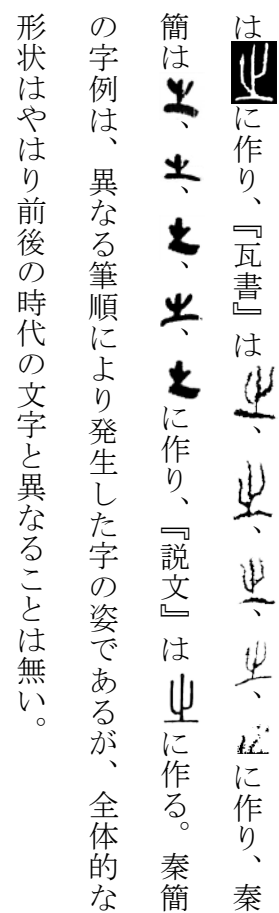 は㞢に作り、『瓦書』は㞢、㞢、㞢、㞢、㞢に作り、秦
簡は㞢、㞢、㞢、㞢、㞢に作り、『説文』は㞢に作る。秦簡
の字例は、異なる筆順により発生した字の姿であるが、全体的な
形状はやはり前後の時代の文字と異なることは無い。